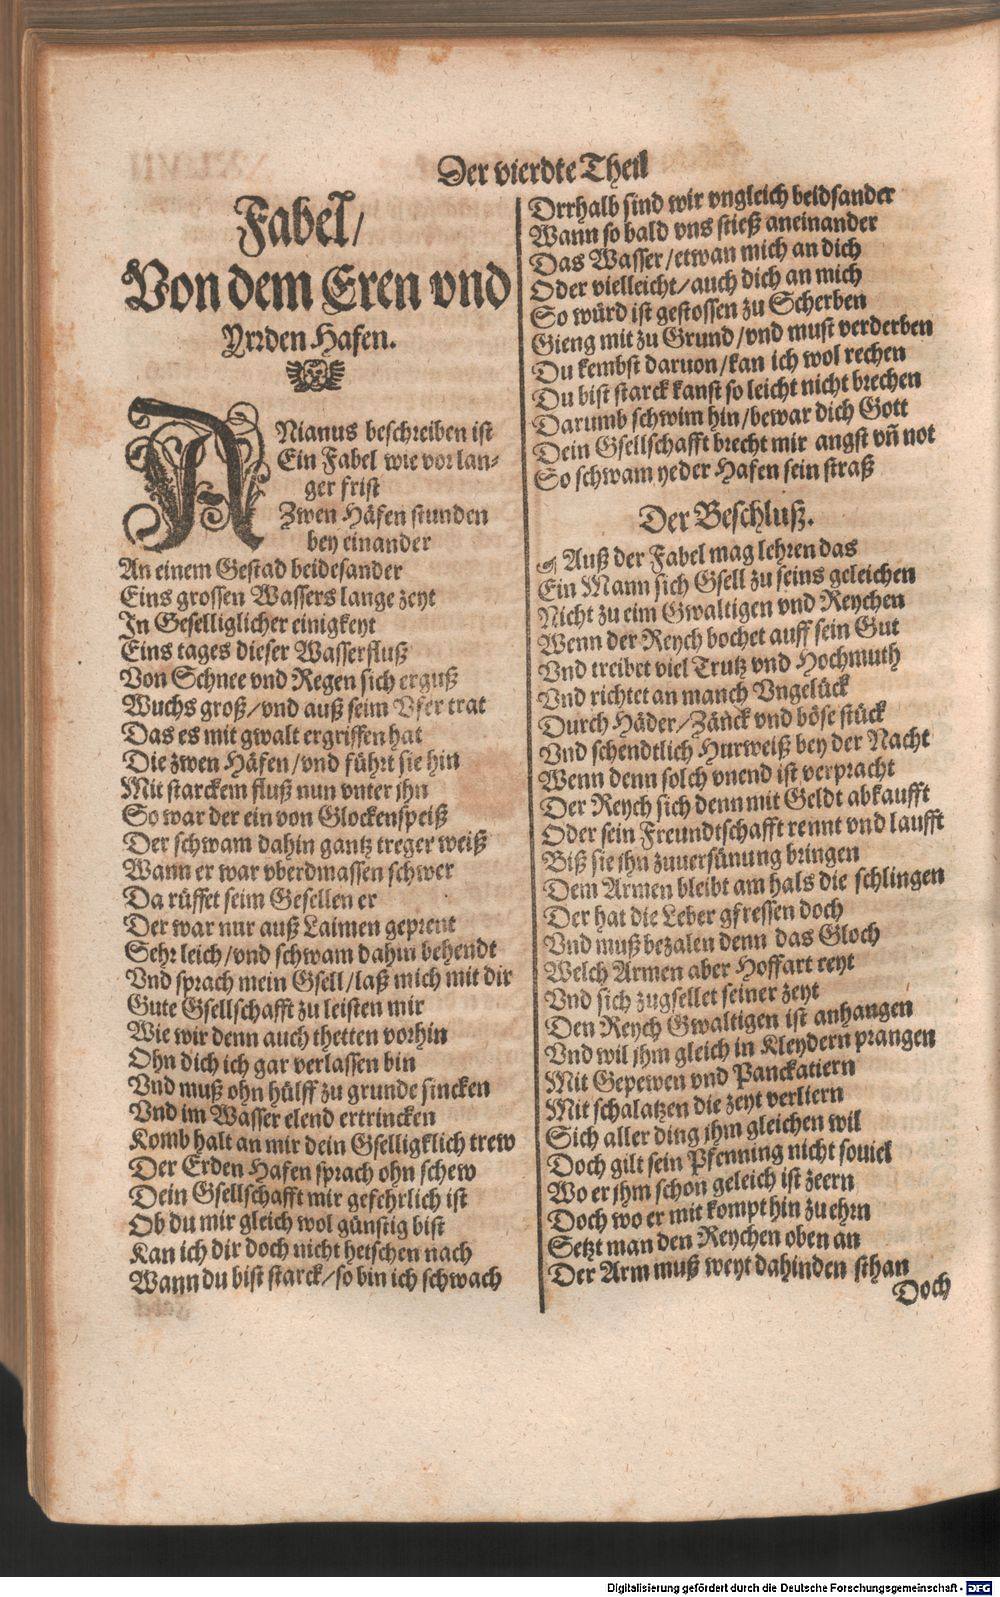 Der vierdte Theil
Fabel/
Von dem Eren vnd
Yrrden Hafen.
ANianus beschreiben ist
Ein Fabel wie vor lan-
ger frist
Zwen Häfen stunden
bey einander
An einem Gestad beidesander
Eins grossen Wassers lange zeyt
In Geselliglicher einigkeyt
Eins tages dieser Wasserfluß
Von Schnee vnd Regen sich erguß
Wuchs groß/vnd auß seim Vfer trat
Das es mit gwalt ergriffen hat
Die zwen Häfen/vnd führt sie hin
Mit starckem fluß nun vnter jhn
So war der ein von Glockenspeiß
Der schwam dahin gantz treger weiß
Wann er war vberdmassen schwer
Da rüffet seim Gesellen er
Der war nur auß Laimen geprent
Sehr leich/vnd schwam dahin behendt
Vnd sprach mein Gsell/laß mich mit dir
Gute Gsellschafft zu leisten mir
Wie wir denn auch thetten vorhin
Ohn dich ich gar verlassen bin
Vnd muß ohn hülff zu grunde sincken
Vnd im Wasser elend ertrincken
Komb halt an mir dein Gselligklich trew
Der Erden Hafen sprach ohn schew
Dein Gsellschafft mir gefehrlich ist
Ob du mir gleich wol günstig bist
Kan ich dir doch nicht hetschen nach
Wann du bist starck/so bin ich schwach
Drrhalb sind wir vngleich beidsander
Wann so bald vns stieß aneinander
Das Wasser/etwan mich an dich
Oder vielleicht/auch dich an mich
So würd ist gestossen zu Scherben
Gieng mit zu Grund/vnd must verderben
Du kembst daruon/kan ich wol rechen
Du bist starck kanst so leicht nicht brechen
Darumb schwim hin/bewar dich Gott
Dein Gsellschafft brecht mir angst vñ not
So schwam yeder Hafen sein straß
Der Beschluß.
☙ Auß der Fabel mag lehren das
Ein Mann sich Gsell zu seins geleichen
Nicht zu eim Gwaltigen vnd Reychen
Wenn der Reych bochet auff sein Gut
Vnd treibet viel Trutz vnd Hochmuth
Vnd richtet an manch Vngelück
Durch Häder/Zänck vnd böse stück
Vnd schendtlich Hurweiß bey der Nacht
Wenn denn solch vnend ist verpracht
Der Reych sich denn mit Geldt abkaufft
Oder sein Freundtschafft rennt vnd laufft
Biß sie jhn zuuersünung bringen
Dem Armen bleibt am hals die schlingen
Der hat die Leber gfressen doch
Vnd muß bezalen denn das Gloch
Welch Armen aber Hoffart reyt
Vnd sich zugsellet seiner zeyt
Den Reych Gwaltigen ist anhangen
Vnd wil jhm gleich in Kleydern prangen
Mit Gepewen vnd Panckatiern
Mit schalatzen die zeyt verliern
Sich aller ding jhm gleichen wil
Doch gilt sein Pfenning nicht souiel
Wo er jhm schon geleich ist zeern
Doch wo er mit kompt hin zu ehrn
Setzt man den Reychen oben an
Der Arm muß weyt dahinden sthan
Doch
Digitalisierung gefördert durch die Deutsche Forschungsgemeinschaft - DFG